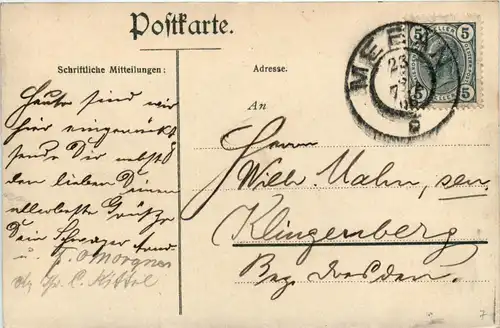 Postkarte.
Schriftliche Mitteilungen:
Adresse.
An
MERAN
23
7
5 HELLER 5
5 5
Heute sind wir
hier eingerückt
sende Dir nebst
den lieben Deinen
allerbeste Grüsse
Dein Schwager
u. Morgner
C. Kittel
Herrn
Wilh. Mahn, sen
Klingenberg
Bez. Dresden.
7